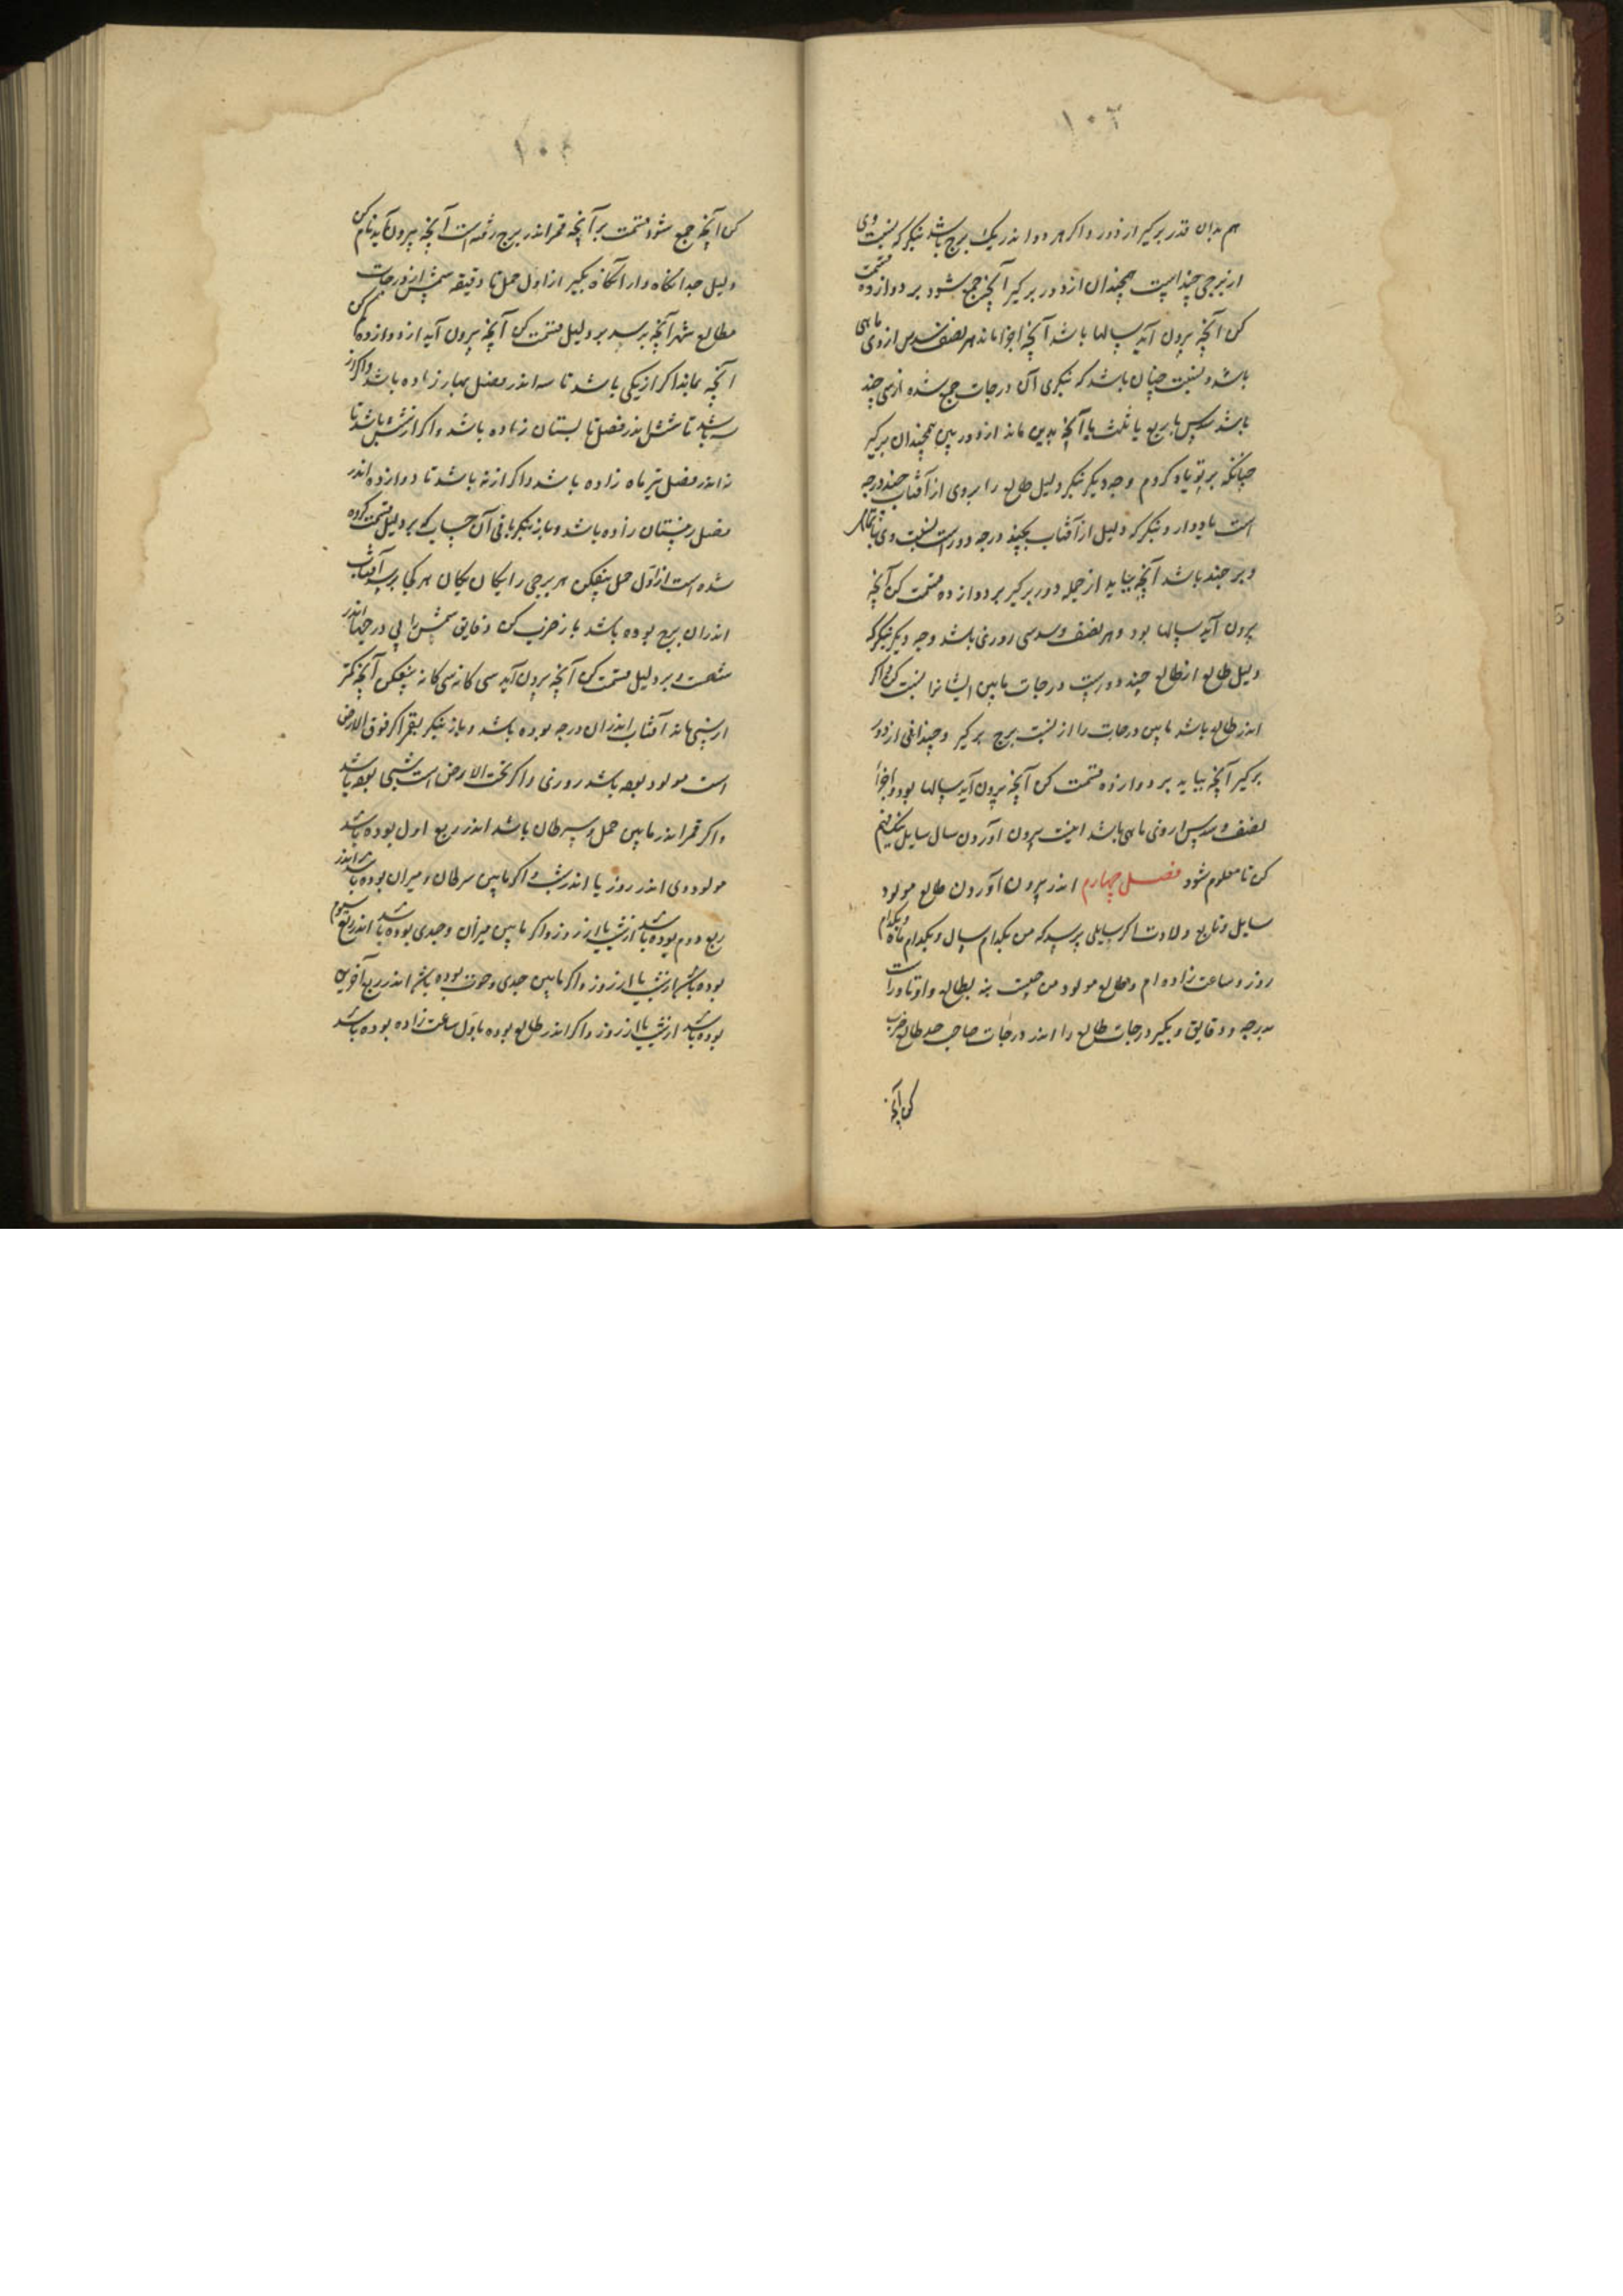 ۱۰۶
هم بدان قدر برکیر از دور و اکر هر دو اندر یک برج باشد بنکر که نسبت وی
از برجی چند است همچندان از دور برکیر آنچه جمع شود بر دوازده قسمت
کن آنچه برون آید سالها باشد آنچه اجزا ماند هر نصف سدس از وی ماهی
باشد و نسبت چنان باشد که بنکری آن درجات جمع شده از سی چند
باشد سدس یا ربع یا ثلث یا آنچه بدین ماند از دور پس همچندان برکیر
چنانکه بر تو یاد کردم وجه دیکر بنکر دلیل طالع را بروی از آفتاب چند درجه
است یاد دار و بنکر که دلیل از آفتاب بچند درجه دور است نسبت وی
و بر چند باشد آنچه بیاید از جمله دور برکیر بر دوازده قسمت کن آنچه
برون آید سالها بود و هر نصف و سدسی روزی باشد وجه دیکر بنکر که
دلیل طالع از طالع چند دورست درجات مابین ایشانرا نسبت کن و اکر
اندر طالع باشد مابین درجات را از نسبت برج برکیر و چندانی از دور
برکیر آنچه بیاید بر دوازده قسمت کن آنچه برون آید سالها بود و اجزا
نصف و سدس از وی ماهی باشد اینست برون آوردن سال سایل
کن تا معلوم شود فصل چهارم اندر برون آوردن طالع مولود
سایل و تاریخ ولادت اکر سایلی پرسد که من بکدام سال و بکدام ماه و بکدام
روز و ساعت زاده ام و طالع مولود من چیست بنه بطالع و اوتاد راست
بدرجه و دقایق و بکیر درجات طالع را اندر درجات صاحب حد طالع ضرب
کن آنچه
۱۰۶
کن آنچه جمع شود قسمت بر آنچه قمر اندر برج رفته است آنچه بیرون آید نام کن
دلیل جداکانه دار آنکاه بکیر از اول حمل تا دقیقه شمس از درجات
مطالع شهر آنچه برسد بر دلیل قسمت کن آنچه برون آید از دوازده کم کن
آنچه بماند اکر از یکی باشد تا سه اندر فصل بهار زاده باشد و اکر از
سه باشد تا شش اندر فصل تابستان زاده باشد و اکر از شش باشد تا
نه اندر فصل تیر ماه زاده باشد و اکر از نه باشد تا دوازده اندر
فصل زمستان زاده باشد و باز بنکر باقی آن حساب که بر دلیل قسمت کرده
شده است از اول حمل بیفکن هر برجی را یکان یکان هر کجا برسد آفتاب
اندران برج بوده باشد باز ضرب کن دقایق شمس را اندر
شصت و بر دلیل قسمت کن آنچه برون آید سی کانه سی کانه بیفکن آنچه کمتر
از سی ماند آفتاب اندران درجه بوده باشد و باز بنکر بقمر اکر فوق الارض
است مولود بوده باشد روزی و اکر تحت الارض است شبی بوده باشد
و اکر قمر اندر مابین حمل و سرطان باشد اندر ربع اول بوده باشد
مولود وی اندر روز یا اندر شب و اکر مابین سرطان و میزان بوده باشد اندر
ربع دوم بوده باشد از شب یا از روز و اکر مابین میزان و جدی بوده باشد اندر ربع سیوم
بوده باشد از شب یا از روز و اکر مابین جدی و حوت بوده باشد اندر ربع آخرین
بوده باشد از شب یا از روز و اکر اندر طالع بوده باول ساعت زاده بوده باشد